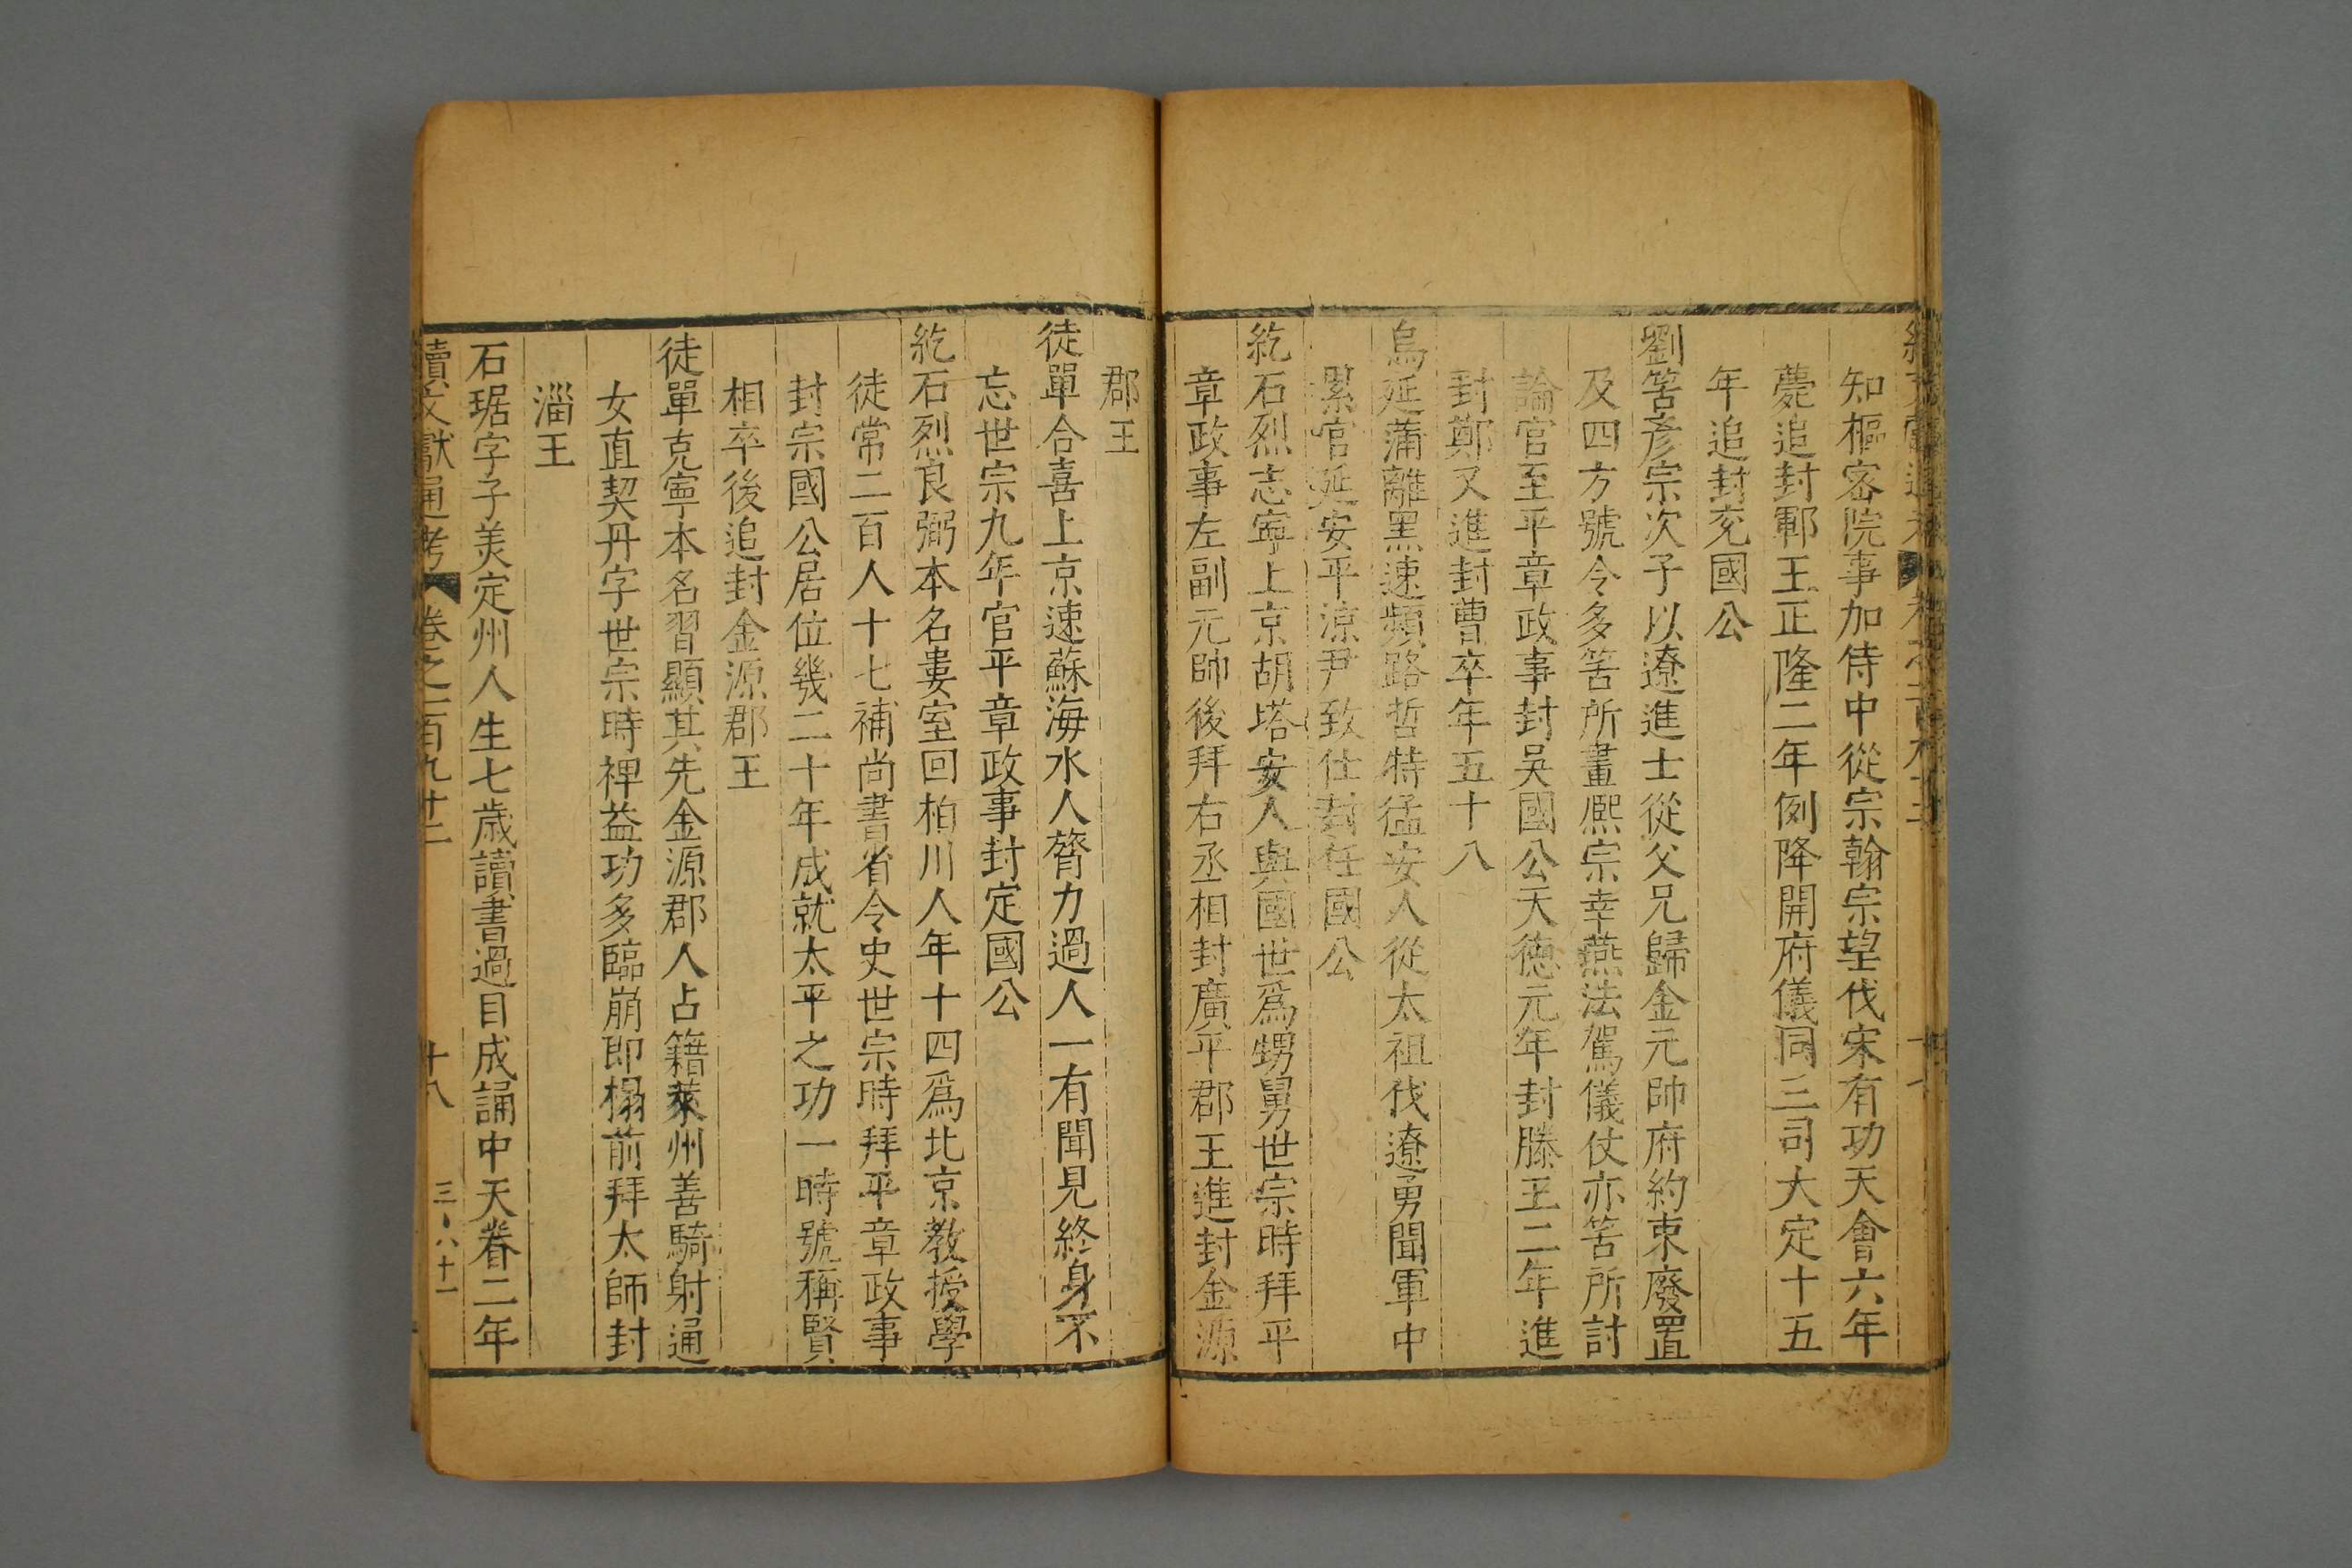 知樞密院事加侍中從宗翰宗望伐宋有功天會六年
薨追封鄆王正隆二年例降開府儀同三司大定十五
年追封兖國公
劉筈彥宗次子以遼進士從父兄歸金元帥府約束廢置
及四方號令多筈所畫熈宗幸燕法駕儀仗亦筈所討
論官至平章政事封吳國公天德元年封滕王二年進
封鄭又進封曹卒年五十八
烏延蒲離黑速頻路哲特猛安人從太祖伐遼勇聞軍中
累官延安平涼尹致仕封任國公
紇石烈志寧上京胡塔安人與國世爲甥舅世宗時拜平
章政事左副元帥後拜右丞相封廣平郡王進封金源
郡王
徒單合喜上京速蘇海水人膂力過人一有聞見終身不
忘世宗九年官平章政事封定國公
紇石烈良弼本名婁室回柏川人年十四爲北京教授學
徒常二百人十七補尚書省令史世宗時拜平章政事
封宗國公居位幾二十年成就太平之功一時號稱賢
相卒後追封金源郡王
徒單克寧本名習顯其先金源郡人占籍萊州善騎射通
女直契丹字世宗時裨益功多臨崩即榻前拜太師封
淄王
石琚字子美定州人生七歲讀書過目成誦中天眷二年
續文獻通考 卷之一百九十二 十八 三・八十一